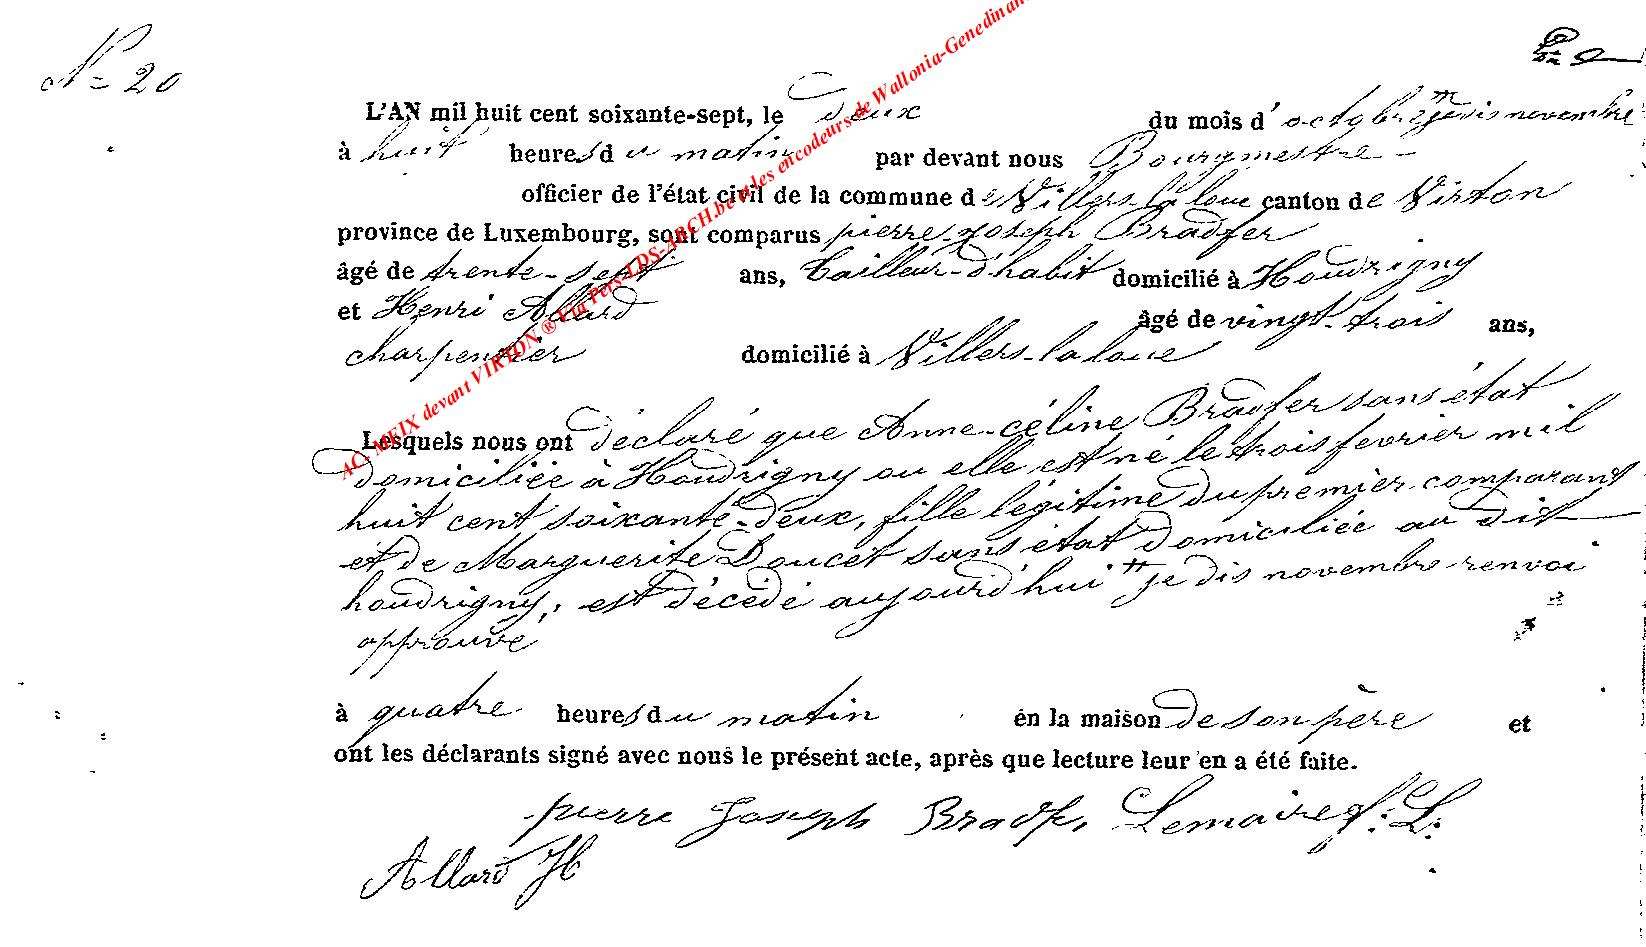 N° 20
L'AN mil huit cent soixante-sept, le deux du mois d' octobre " je dis novembre
à huit heures du matin par devant nous Bourgmestre
officier de l'état civil de la commune de Villers-la loue canton de Virton
province de Luxembourg, sont comparus pierre-joseph Bradfer
âgé de trente-sept ans, tailleur-d'habit domicilié à Houdrigny
et Henri Allard âgé de vingt-trois ans,
charpentier domicilié à Villers-la loue
Lesquels nous ont déclaré que Anne-céline Bradfer sans état
domiciliée à Houdrigny ou elle est né le trois fevrier mil
huit cent soixante-deux, fille légitime du premier comparant
et de Marguerite Doucet sans état domiciliée au dit
houdrigny, est décédé aujourd'hui " je dis novembre renvoi
approuvé
à quatre heures du matin en la maison de son père et
ont les déclarants signé avec nous le présent acte, après que lecture leur en a été faite.
pierre Joseph Bradf. Lemaire f. L.
Allard H
AC. MEIX devant VIRTON ® Via Pers-LDS-ARCH.be et les encodeurs de Wallonia-Genedinant